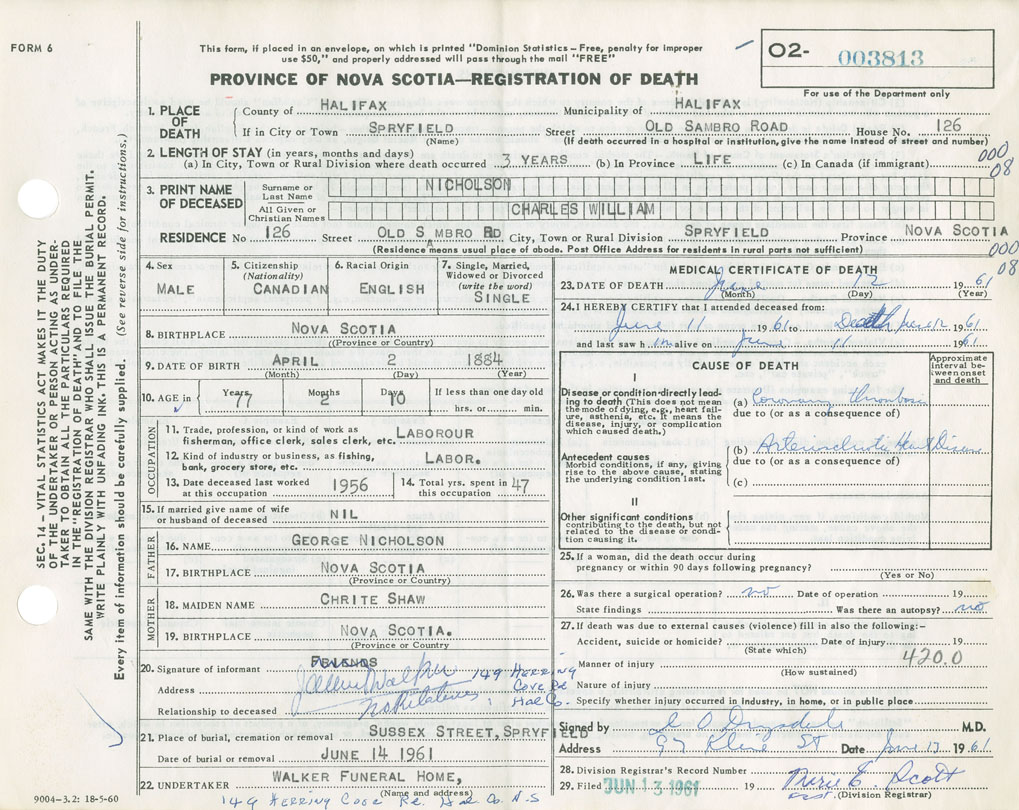 FORM 6
This form, if placed in an envelope, on which is printed "Dominion Statistics—Free, penalty for improper
use $50," and properly addressed will pass through the mail "FREE"
PROVINCE OF NOVA SCOTIA—REGISTRATION OF DEATH
O2- 003813
For use of the Department only
1. PLACE OF DEATH County of HALIFAX Municipality of HALIFAX
If in City or Town SPRYFIELD Street OLD SAMBRO ROAD House No. 126
(Name) (If death occurred in a hospital or institution, give the name instead of street and number)
2. LENGTH OF STAY (in years, months and days)
(a) In City, Town or Rural Division where death occurred 3 YEARS (b) In Province LIFE (c) In Canada (if immigrant) 000
08
3. PRINT NAME OF DECEASED Surname or Last Name NICHOLSON
All Given or Christian Names CHARLES WILLIAM
RESIDENCE No 126 Street OLD S MBRO RD City, Town or Rural Division SPRYFIELD Province NOVA SCOTIA
(Residence means usual place of abode. Post Office Address for residents in rural parts not sufficient) 000
08
4. Sex MALE
5. Citizenship (Nationality) CANADIAN
6. Racial Origin ENGLISH
7. Single, Married, Widowed or Divorced (write the word) SINGLE
8. BIRTHPLACE NOVA SCOTIA
((Province or Country)
9. DATE OF BIRTH APRIL 2 1884
(Month) (Day) (Year)
10. AGE in Years 77 Months 2 Days 10 If less than one day old
hrs. or min.
OCCUPATION
11. Trade, profession, or kind of work as
fisherman, office clerk, sales clerk, etc. LABOROUR
12. Kind of industry or business, as fishing,
bank, grocery store, etc. LABOR.
13. Date deceased last worked at this occupation 1956
14. Total yrs. spent in this occupation 47
15. If married give name of wife
or husband of deceased NIL
FATHER
16. NAME GEORGE NICHOLSON
17. BIRTHPLACE NOVA SCOTIA
(Province or Country)
MOTHER
18. MAIDEN NAME CHRITE SHAW
19. BIRTHPLACE NOVA SCOTIA.
(Province or Country)
FRIENDS
20. Signature of informant Walker 149 HERRING
Address COVE Rd
Relationship to deceased no Relatives Hal Co.
21. Place of burial, cremation or removal SUSSEX STREET, SPRYFIELD
Date of burial or removal JUNE 14 1961
22. UNDERTAKER WALKER FUNERAL HOME,
(Name and address)
149 HERRING COVE Rd. Hal Co. N.S
9004-3.2: 18-5-60
MEDICAL CERTIFICATE OF DEATH
23. DATE OF DEATH June 12 19 61
(Month) (Day) (Year)
24. I HEREBY CERTIFY that I attended deceased from:
June 11 19 61 to Death June 12 19 61
and last saw h im alive on June 11 19 61
CAUSE OF DEATH
Approximate interval between onset and death
I
Disease or condition directly leading to death (This does not mean the mode of dying, e.g., heart failure, asthenia, etc. It means the disease, injury, or complication which caused death.)
(a) Coronary thrombosis
due to (or as a consequence of)
Antecedent causes
Morbid conditions, if any, giving rise to the above cause, stating the underlying condition last.
(b) Arteriosclerotic Heart Disease
due to (or as a consequence of)
(c)
II
Other significant conditions
contributing to the death, but not related to the disease or condition causing it.
25. If a woman, did the death occur during
pregnancy or within 90 days following pregnancy?
(Yes or No)
26. Was there a surgical operation? no Date of operation 19
State findings Was there an autopsy? no
27. If death was due to external causes (violence) fill in also the following:—
Accident, suicide or homicide? Date of injury 19
(State which)
Manner of injury 420.0
(How sustained)
Nature of injury
Specify whether injury occurred in industry, in home, or in public place
Signed by M.D.
Address 97 Kline ST Date June 13 19 61
28. Division Registrar's Record Number
29. Filed JUN 13 1961 19 Marie E. Scott
(Division Registrar)
SEC. 14 – VITAL STATISTICS ACT MAKES IT THE DUTY
OF THE UNDERTAKER OR PERSON ACTING AS UNDER-
TAKER TO OBTAIN ALL THE PARTICULARS REQUIRED
IN THE "REGISTRATION OF DEATH" AND TO FILE THE
SAME WITH THE DIVISION REGISTRAR WHO SHALL ISSUE THE BURIAL PERMIT.
WRITE PLAINLY WITH UNFADING INK. THIS IS A PERMANENT RECORD.
Every item of information should be carefully supplied. (See reverse side for instructions.)